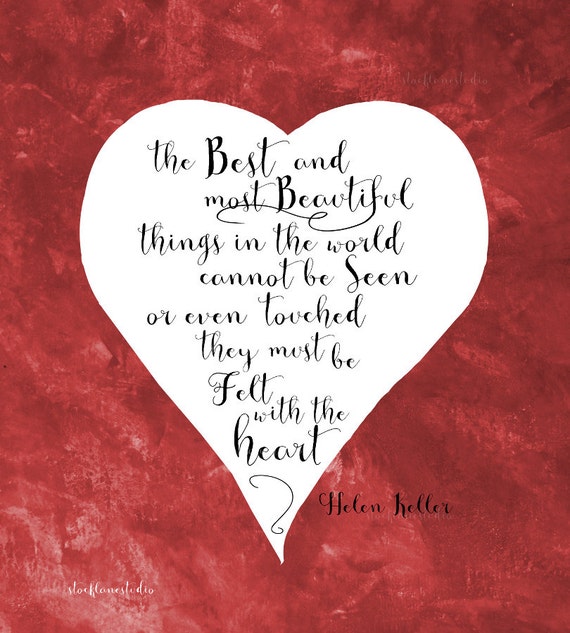 stocklanestudio
the Best and
most Beautiful
things in the world
cannot be Seen
or even touched
they must be
Felt
with the
heart
Helen Keller
stocklanestudio